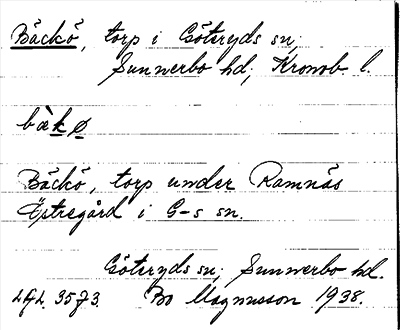 Bäckö, torp i Göteryds sn,
Sunnerbo hd; Kronob. l.
bὰkø
Bäckö, torp under Ramnäs
Östregård i G-s sn.
Göteryds sn; Sunnerbo hd.
Bo Magnusson 1938.